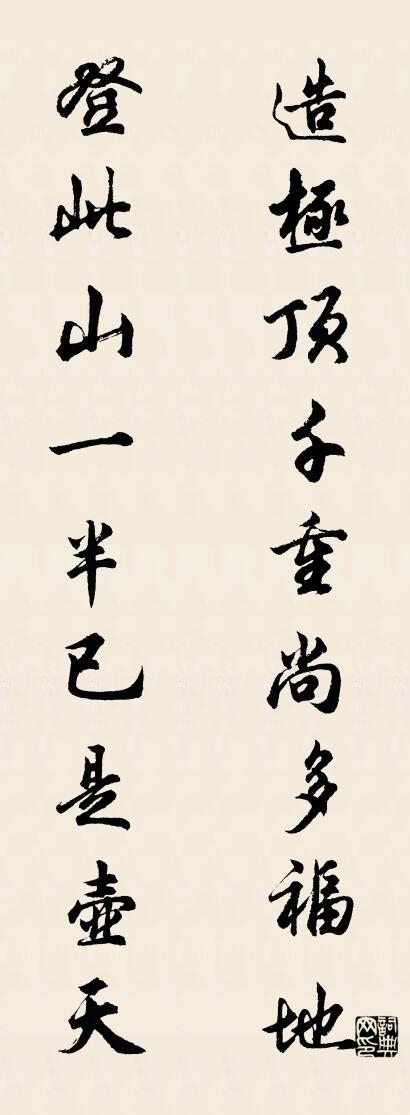 造極頂千重尚多福地
登此山一半已是壺天
詞典
网印